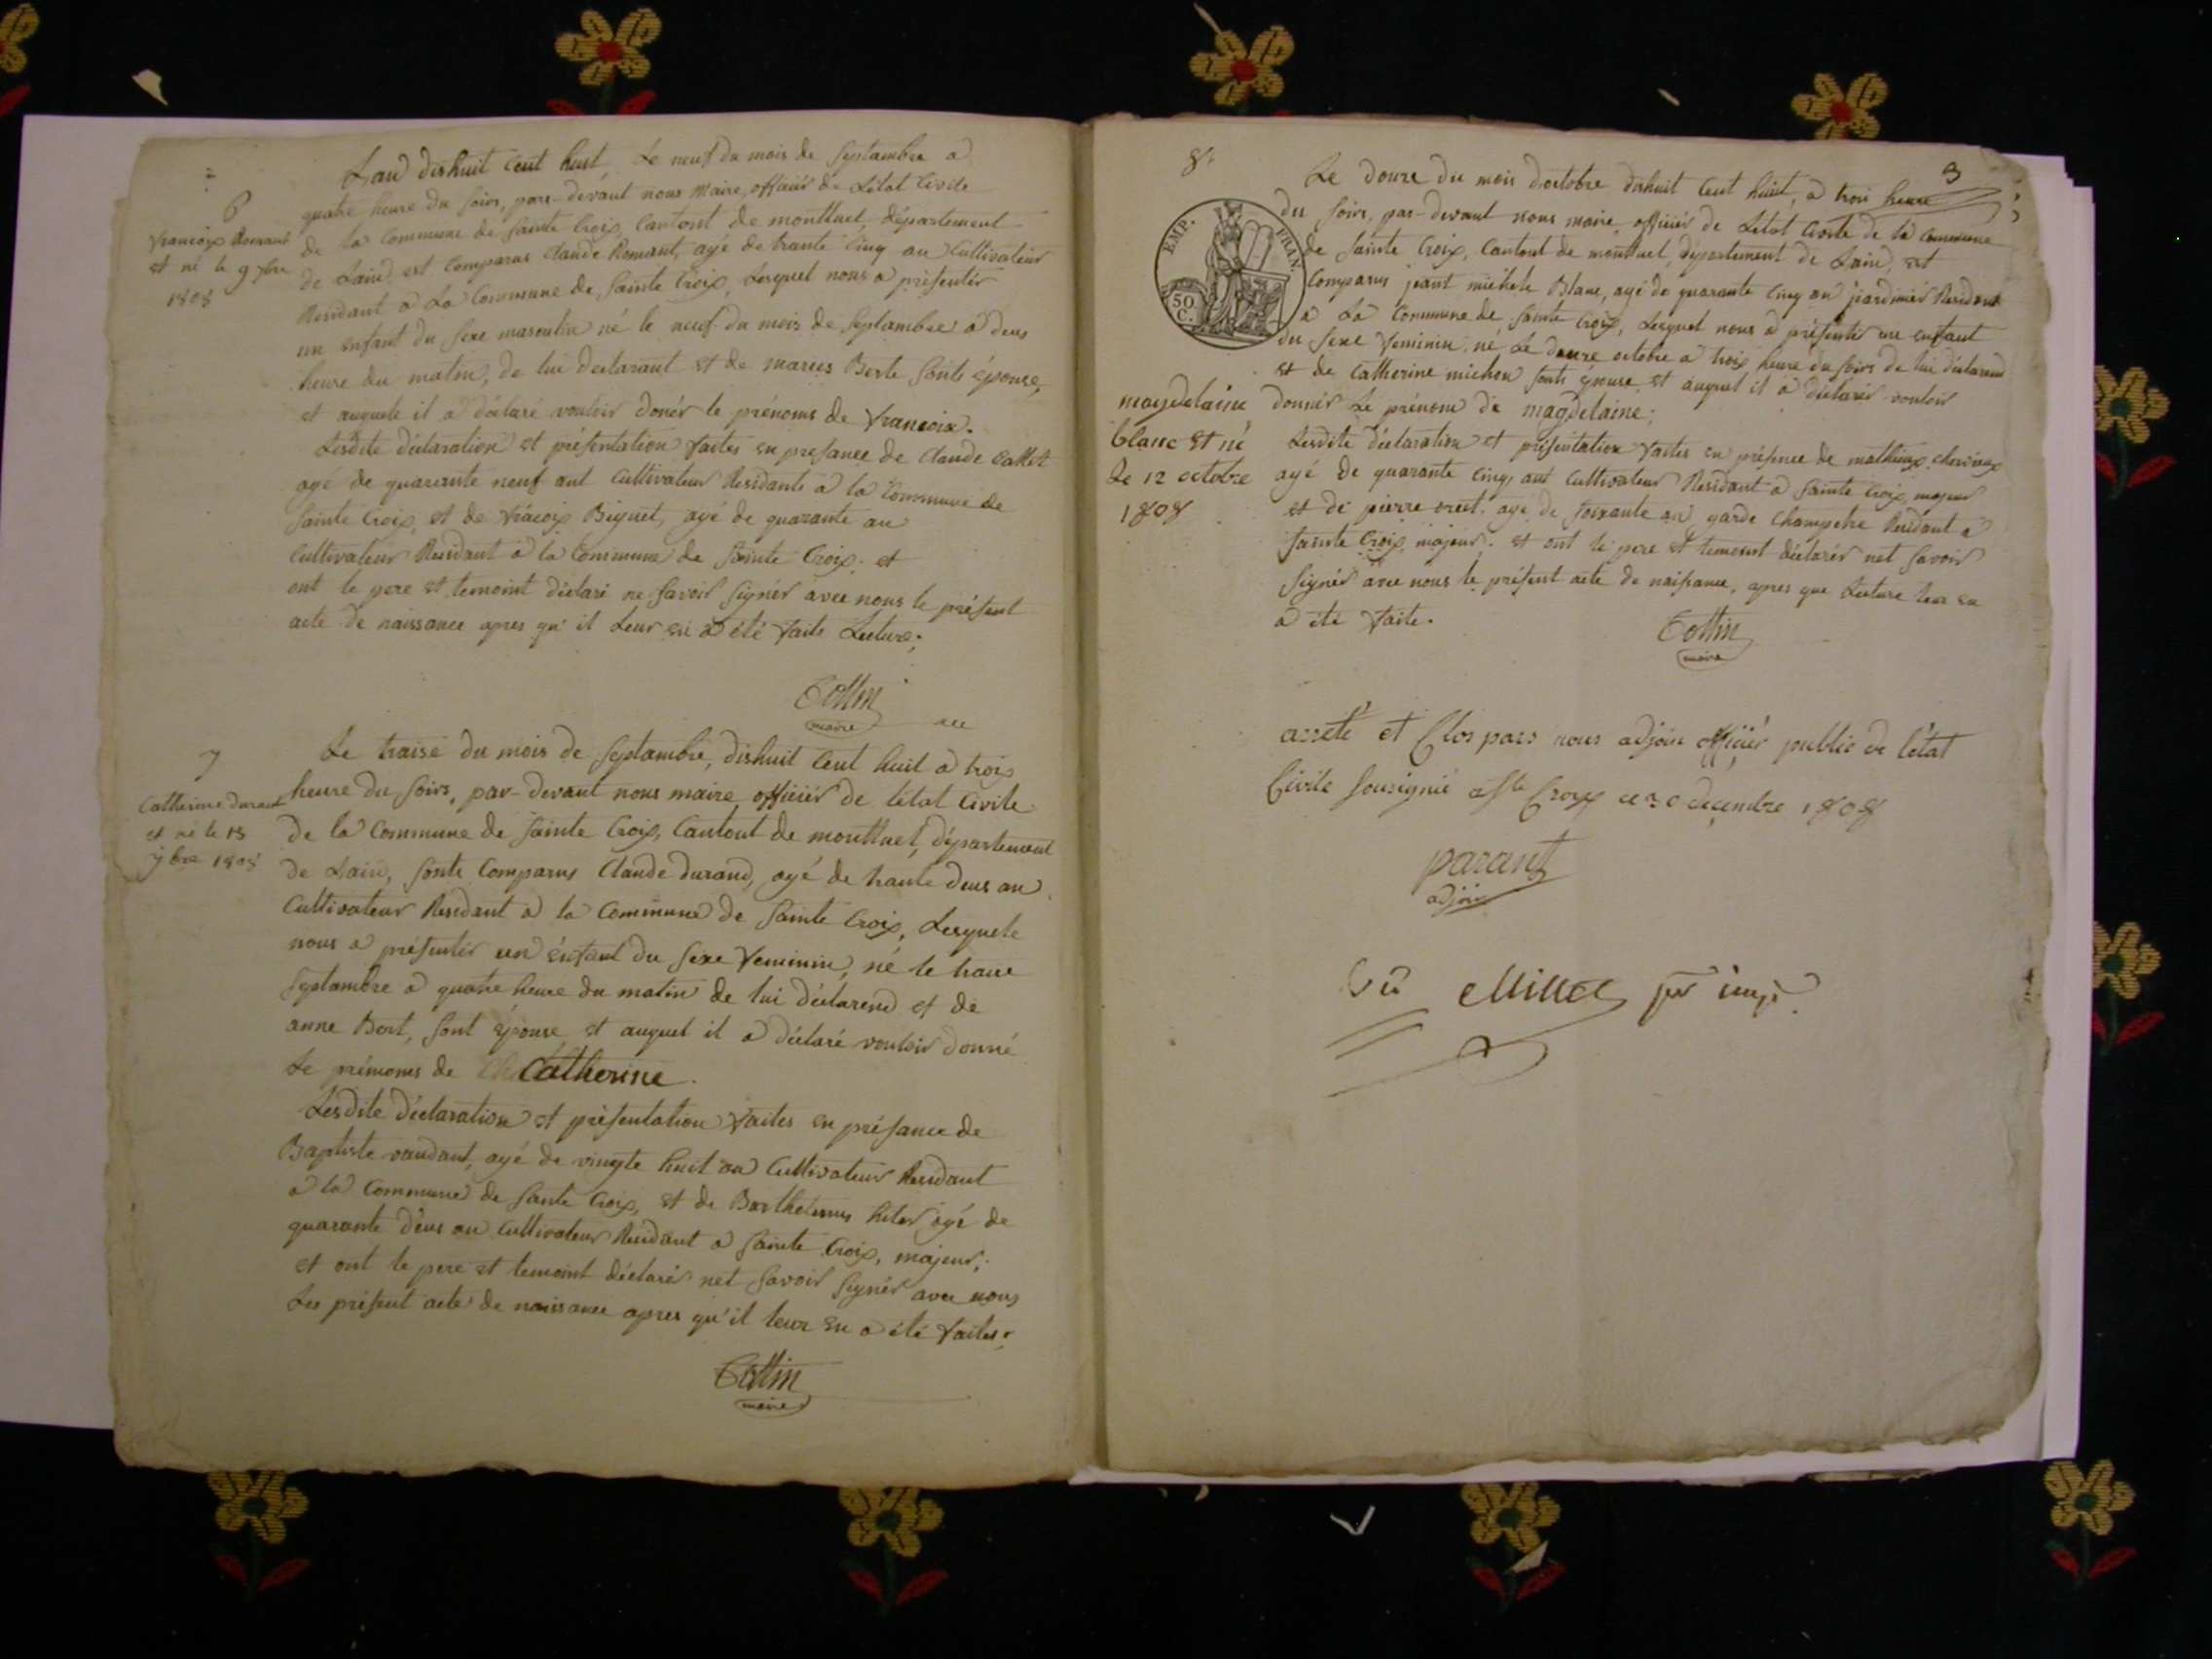 6
Francoix Romant
et né le 9 7bre
1808
Lan dishuit cent huit, Le neuf du mois de Septambre a
quatre heure du soirs, pare-devant nous Maire, officiér de Létat Civile
de la Commune de Sainte Croix, Cantont de monttuel, département
de Laind est Comparus Claude Romant, agé de trante Cinq an Cultivateur
Residant a La Commune de Sainte Croix, Lesquel nous a présentér
un enfant du sexe masculin né le neuf du mois de Septambre a deus
heure du matin, de lui declarant et de maries Berte sonte épouse,
et auquele il a déclaré vouloir donér le prénoms de francoix.
Lesdite déclaration et présentation faites en presance de Claude Callet
agé de quarante neuf ant Cultivateur Residante a la Commune de
Sainte Croix, et de fracoix Biguet, agé de quarante an
Cultivateur Residant a la Commune de Sainte Croix; et
ont le pere et temoint déclaré ne savoir signér avec nous le présent
acte de naissance apres qu'il Leur en a été faite Lecture;
Cottin
maire
7
Catherine durant
et né le 13
7bre 1808
Le traise du mois de Septambre, dishuit cent huit a trois
heure du soirs, par-devant nous maire officiér de létat Civile
de la Commune de Sainte Croix, Cantont de monttuel, département
de Lain, sonte Comparus Claude durand, agé de trante deus an
Cultivateur Residant a la Commune de Sainte Croix, Lesquele
nous a présentér un énfant du sexe feminin, né le traise
Septambre a quatre heure du matin de lui déclarend et de
anne Bert, sont épouse et auquel il a déclaré vouloir donné
Le prénoms de Catherine.
Lésdite déclaration et présentation faites en présance de
Baptiste vaudant, agé de vingte huit an Cultivateur Residant
a la Commune de Sante Croix, et de Barthelemus agé de
quarante déus an Cultivateur Residant a Sainte Croix, majeur;
et ont le pere et temoint déclarér net savoir signér avec nous
Les présent acte de naissance apres qu'il leur en a été faites;
Cottin
maire
8
3
EMP. FRAN.
50 C.
magdelaine
blanc et né
Le 12 octobre
1808
Le douze du mois doctobre dishuit cent huit, a troi heure
du soirs, par-devant nous maire officiér de Létat Civile de la Commune
de Sainte Croix, Cantont de monttuel, département de Laind, est
Comparus jeant michele Blanc, agé de quarante cinq an jiardiniér Residant
a La Commune de Sainte Croix, Lesquel nous a présentér un enfant
du sexe feminin né Le douze octobre a trois heure du soirs de lui déclarend
et de Catherine michon sont épouse et auquel il a déclarér vouloir
donnér Le prénom de magdelaine;
Lesdite déclaration et présentation faites en présence de mathieux
agé de quarante cinq ant Cultivateur Residant a Sainte Croix, majeur
et de pierre agé de soixante an garde Champetre Residant a
Sainte Croix, majeur; et ont le pere et temoint déclarér net savoir
signér avec nous le présent acte de naissance, apres que Lecture leur en
a été faite.
Cottin
maire
arrêté et Clos pars nous adjoin officiér public de létat
Civile sousigné a Ste Croix ce 30 decembre 1808
parant
adjoin
Vu Millet